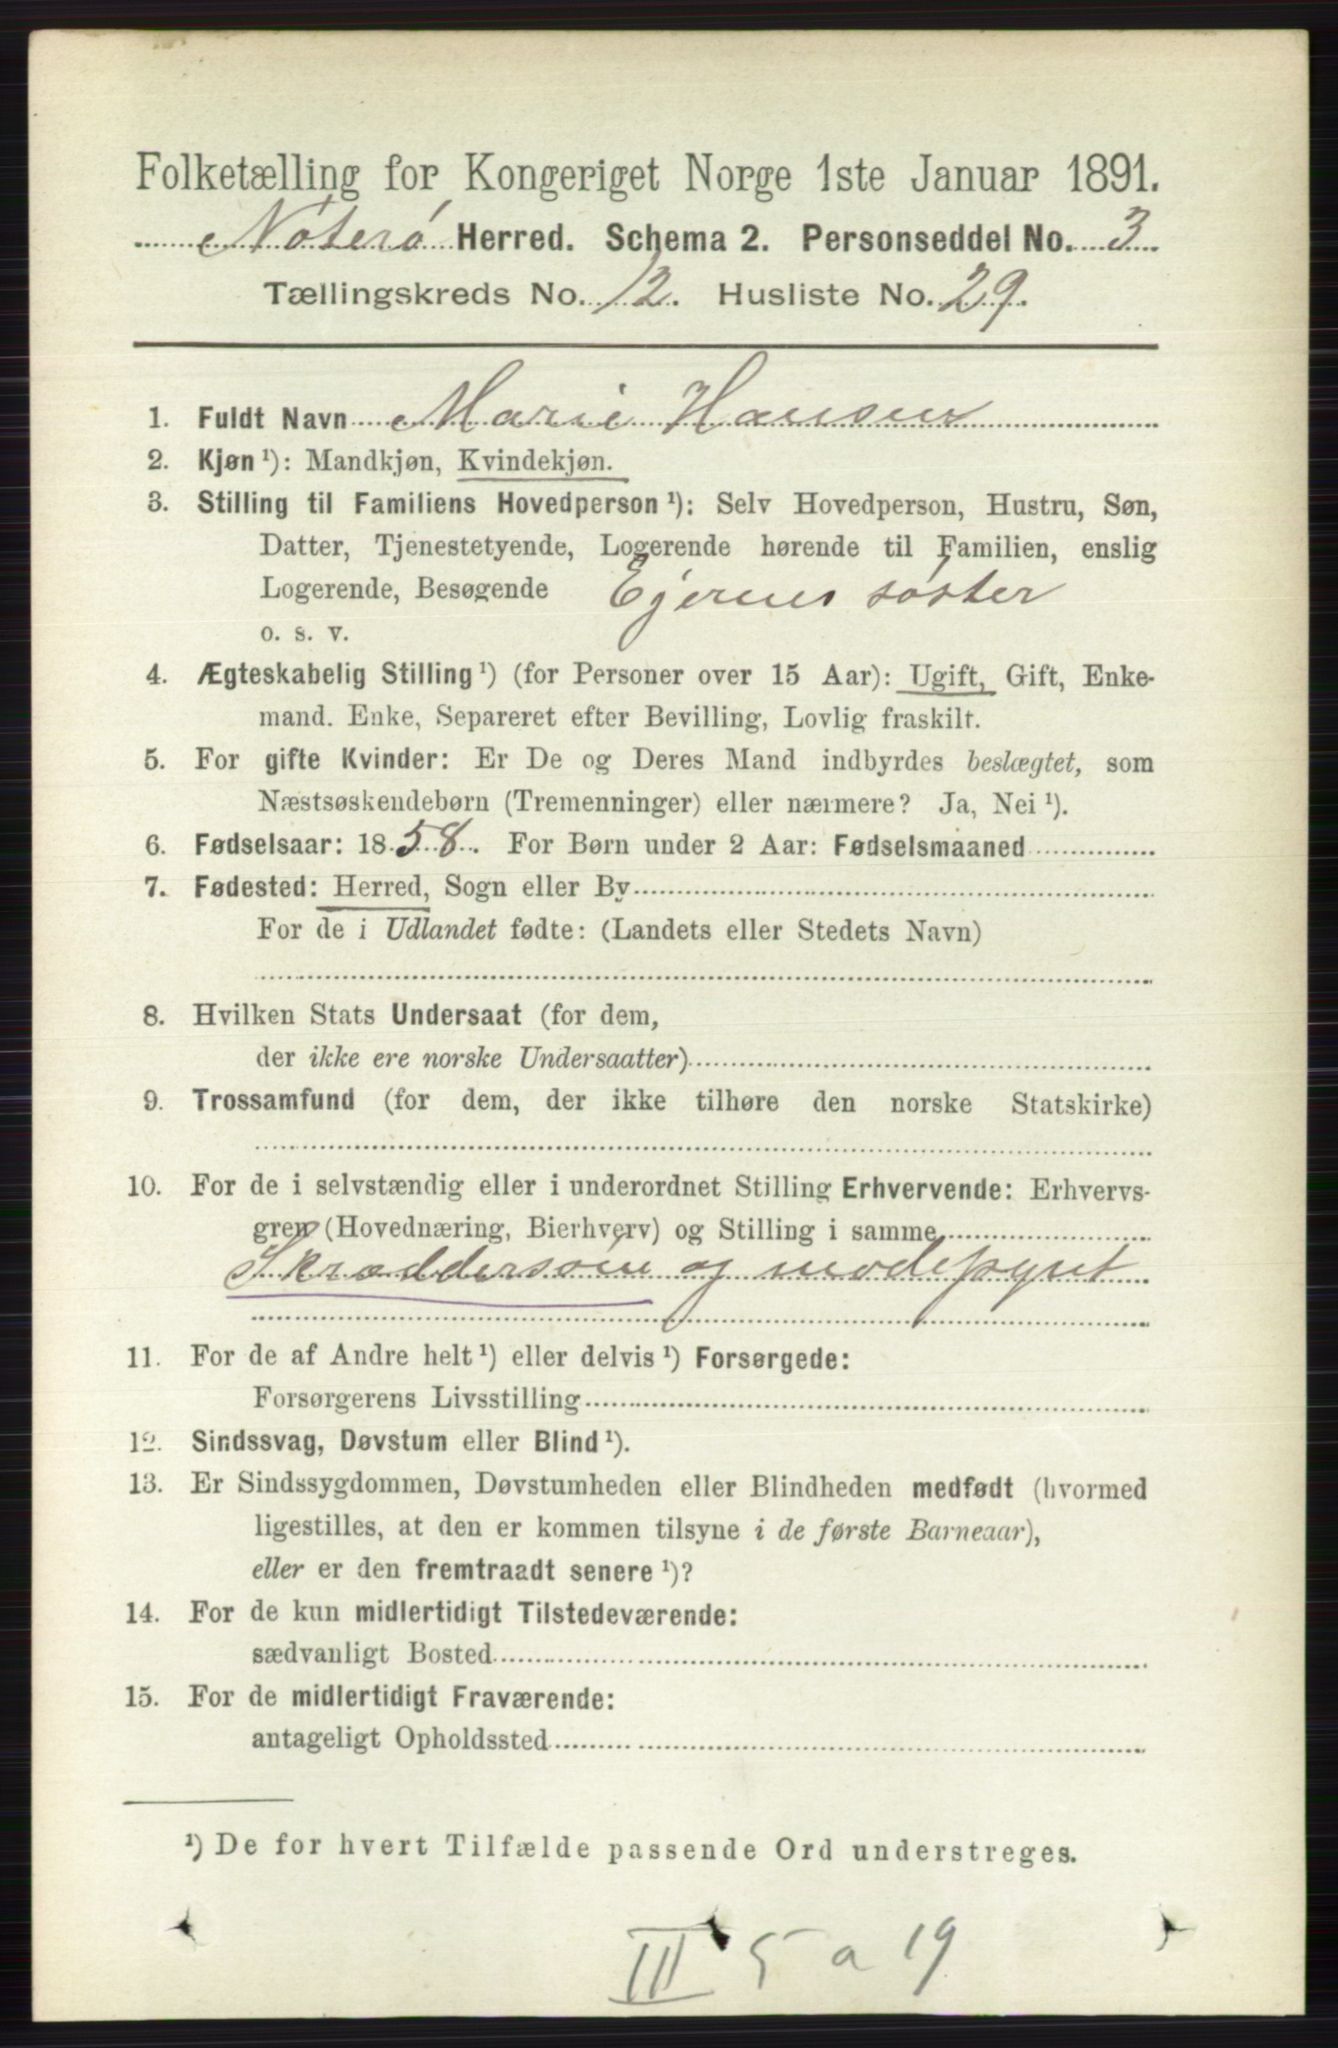 Folketælling for Kongeriget Norge 1ste Januar 1891.
Nøterø Herred. Schema 2. Personseddel No. 3
Tællingskreds No. 12. Husliste No. 29.
1. Fuldt Navn Marie Hansen
2. Kjøn ¹): Mandkjøn, Kvindekjøn.
3. Stilling til Familiens Hovedperson ¹): Selv Hovedperson, Hustru, Søn,
Datter, Tjenestetyende, Logerende hørende til Familien, enslig
Logerende, Besøgende Ejerens søster
o. s. v.
4. Ægteskabelig Stilling ¹) (for Personer over 15 Aar): Ugift, Gift, Enke-
mand. Enke, Separeret efter Bevilling, Lovlig fraskilt.
5. For gifte Kvinder: Er De og Deres Mand indbyrdes beslægtet, som
Næstsøskendebørn (Tremenninger) eller nærmere? Ja, Nei ¹).
6. Fødselsaar: 1858. For Børn under 2 Aar: Fødselsmaaned
7. Fødested: Herred, Sogn eller By
For de i Udlandet fødte: (Landets eller Stedets Navn)
8. Hvilken Stats Undersaat (for dem,
der ikke ere norske Undersaatter)
9. Trossamfund (for dem, der ikke tilhøre den norske Statskirke)
10. For de i selvstændig eller i underordnet Stilling Erhvervende: Erhvervs-
gren (Hovednæring, Bierhverv) og Stilling i samme
Skræddersøm og modepynt
11. For de af Andre helt ¹) eller delvis ¹) Forsørgede:
Forsørgerens Livsstilling
12. Sindssvag, Døvstum eller Blind ¹).
13. Er Sindssygdommen, Døvstumheden eller Blindheden medfødt (hvormed
ligestilles, at den er kommen tilsyne i de første Barneaar),
eller er den fremtraadt senere ¹)?
14. For de kun midlertidigt Tilstedeværende:
sædvanligt Bosted
15. For de midlertidigt Fraværende:
antageligt Opholdssted
¹) De for hvert Tilfælde passende Ord understreges.
III 5 a 19